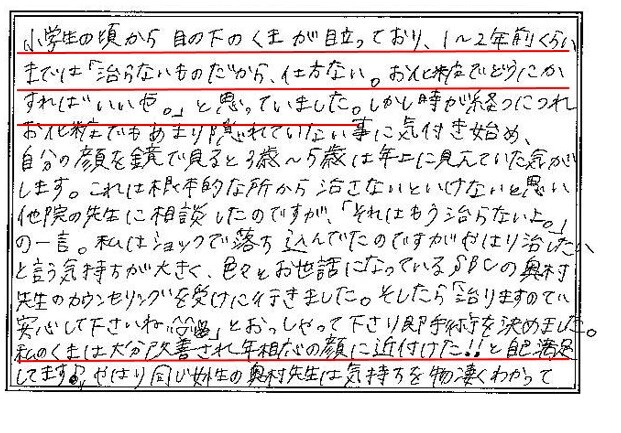 小学生の頃から目の下のくまが目立っており、1〜2年前くらい
までは「治らないものだから、仕方ない。お化粧でどうにか
すればいいや。」と思っていました。しかし時が経つにつれ
お化粧でもあまり隠れていない事に気付き始め、
自分の顔を鏡で見ると3歳〜5歳は年上に見えていた気が
します。これは根本的な所から治さないといけないと思い
他院の先生に相談したのですが、「それはもう治らないよ。」
の一言。私はショックで落ち込んでたのですがやはり治したい
と言う気持ちが大きく、色々とお世話になっているSBCの奥村
先生のカウンセリングを受けに行きました。そしたら「治りますので
安心して下さいね」とおっしゃって下さり即手術を決めました。
私のくまは大分改善され年相応の顔に近付けた!!と自己満足
してます♪やはり同じ女性の奥村先生は気持ちを物凄くわかって